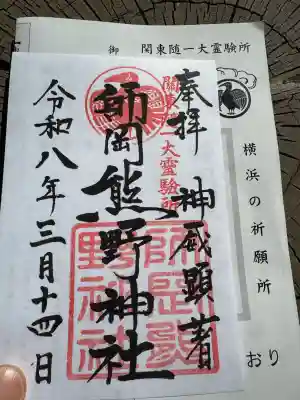 御 関東随一大霊験所
横浜の祈願所
おり
奉拝 神威顕著
關東随一大霊験所
師岡熊野神社
師岡熊野神社
令和八年三月十四日